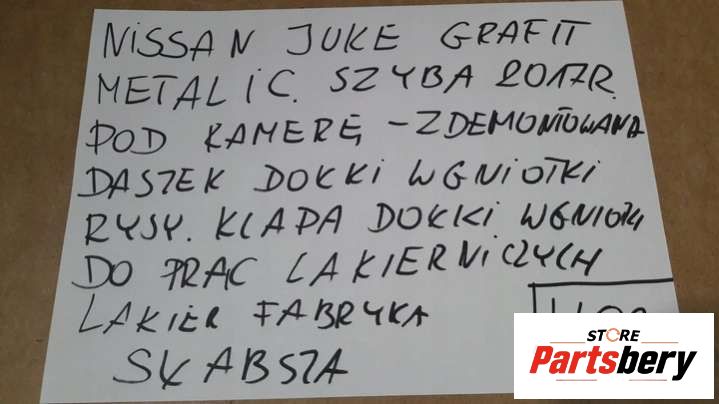 NISSAN JUKE GRAFIT
METALIC. SZYBA 2017R.
POD KAMERĘ - ZDEMONTOWANA
DASZEK DOKKI WGNIOTKI
RYSY. KLAPA DOKKI WGNIOTKI
DO PRAC LAKIERNICZYCH
LAKIER FABRYKA
SŁABSZA
STORE
Partsbery